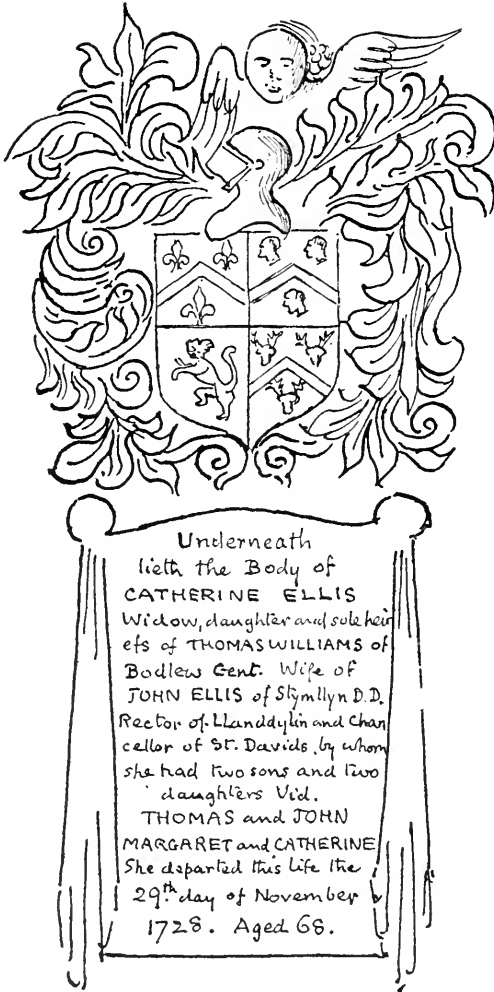 Underneath
lieth the Body of
CATHERINE ELLIS
Widow, daughter and sole heir
ess of THOMAS WILLIAMS of
Bodlew Gent. Wife of
JOHN ELLIS of Stymllyn D.D.
Rector of LLanddylin and Chan
cellor of St. Davids, by whom
she had two sons and two
daughters Vid.
THOMAS and JOHN
MARGARET and CATHERINE
She departed this life the
29th day of November
1728. Aged 68.